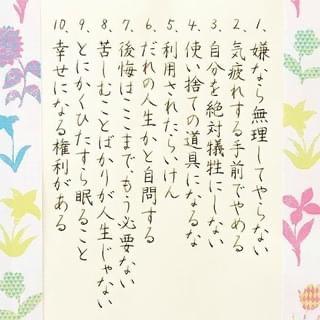 1、嫌なら無理してやらない
2、気疲れする手前でやめる
3、自分を絶対犠牲にしない
4、使い捨ての道具になるな
5、利用されたらいけん
6、だれの人生かと自問する
7、後悔はここまで、もう必要ない
8、苦しむことばかりが人生じゃない
9、とにかくひたすら眠ること
10、幸せになる権利がある